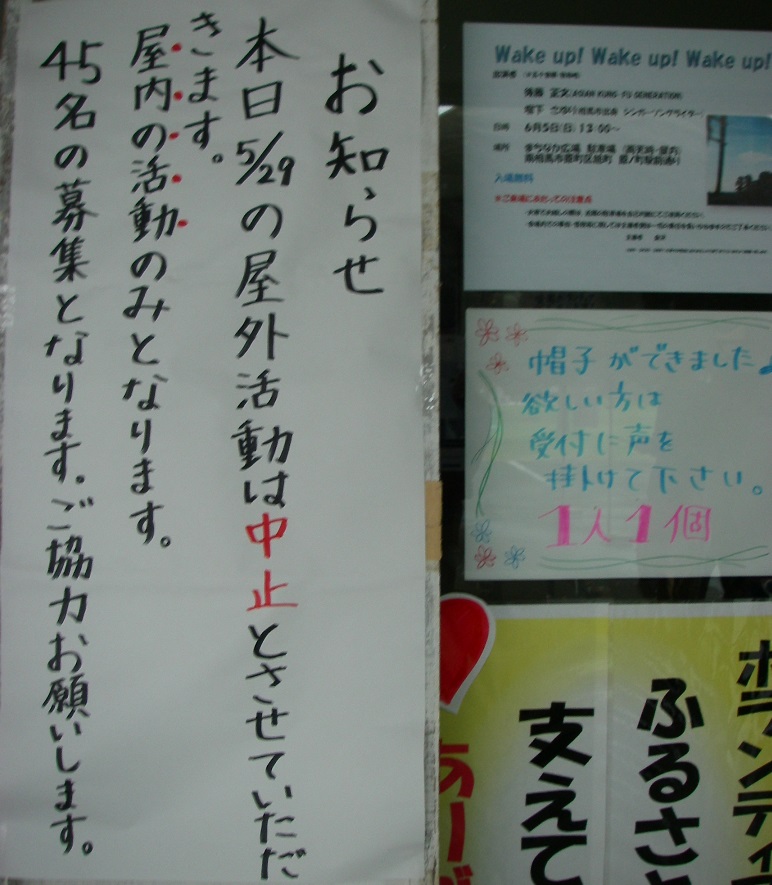 お知らせ
本日5/29の屋外活動は中止とさせていただ
きます。
屋内の活動のみとなります。
45名の募集となります。ご協力お願いします。
Wake up! Wake up! Wake up!
後藤 正文(ASIAN KUNG-FU GENERATION)
日時 6月5日(日) 13:00〜
場所 まちなか広場 駐車場
入場無料
帽子ができました♪
欲しい方は
受付に声を
掛けて下さい。
1人1個
ボランティ
ふるさ
支えて